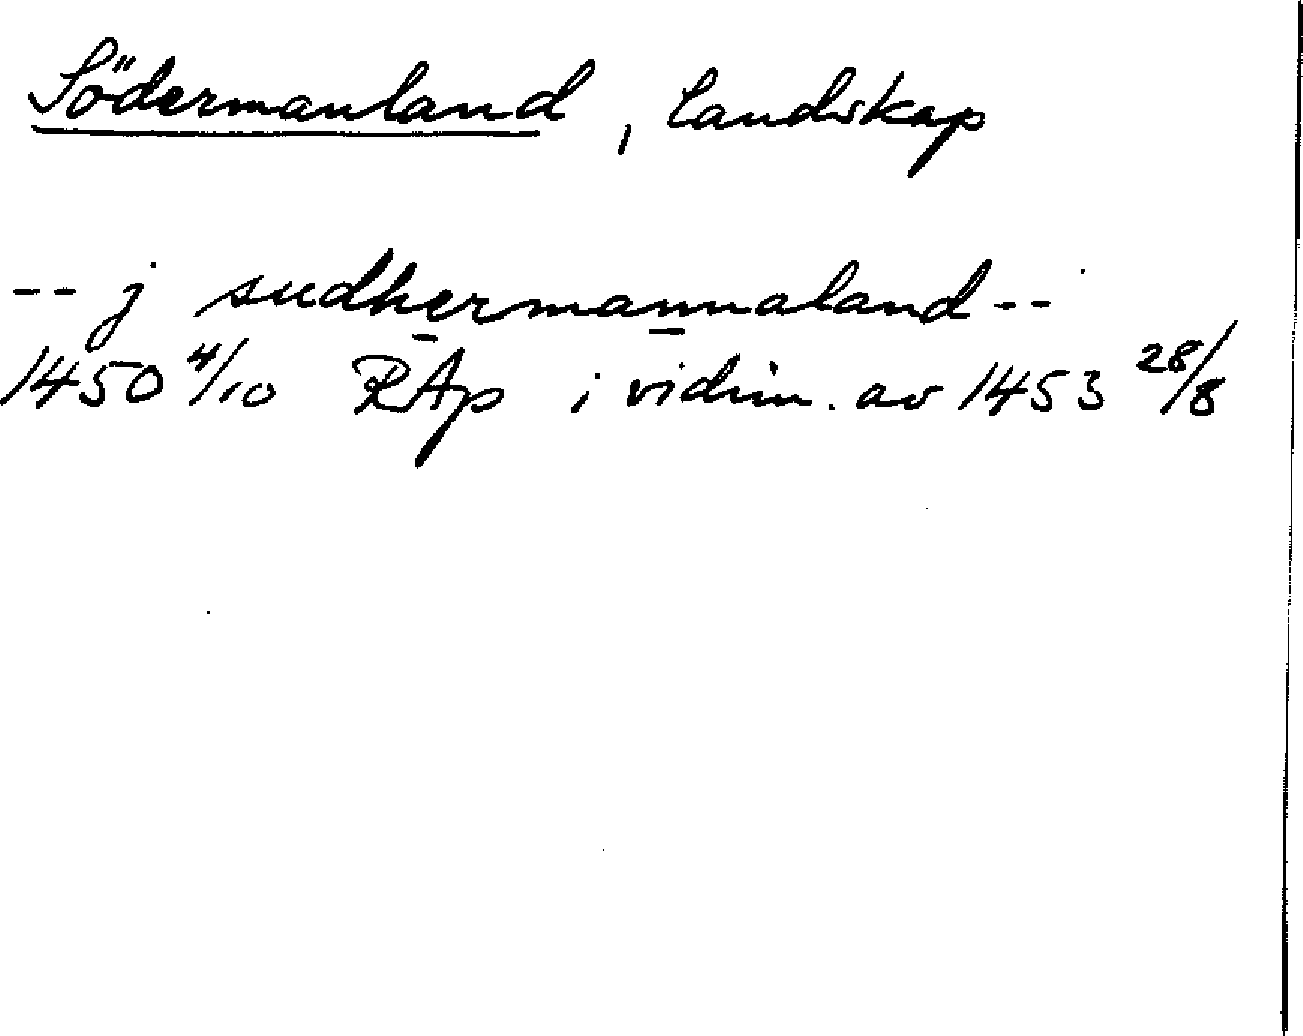 Södermanland, landskap
-- j sudhermannaland --
1450 4/10 RAp i vidim. av 1453 28/8